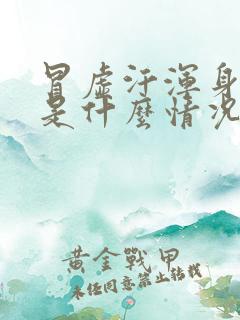 冒虛汗渾身
是什麼情況
黃金戰甲
未經同意禁止轉載